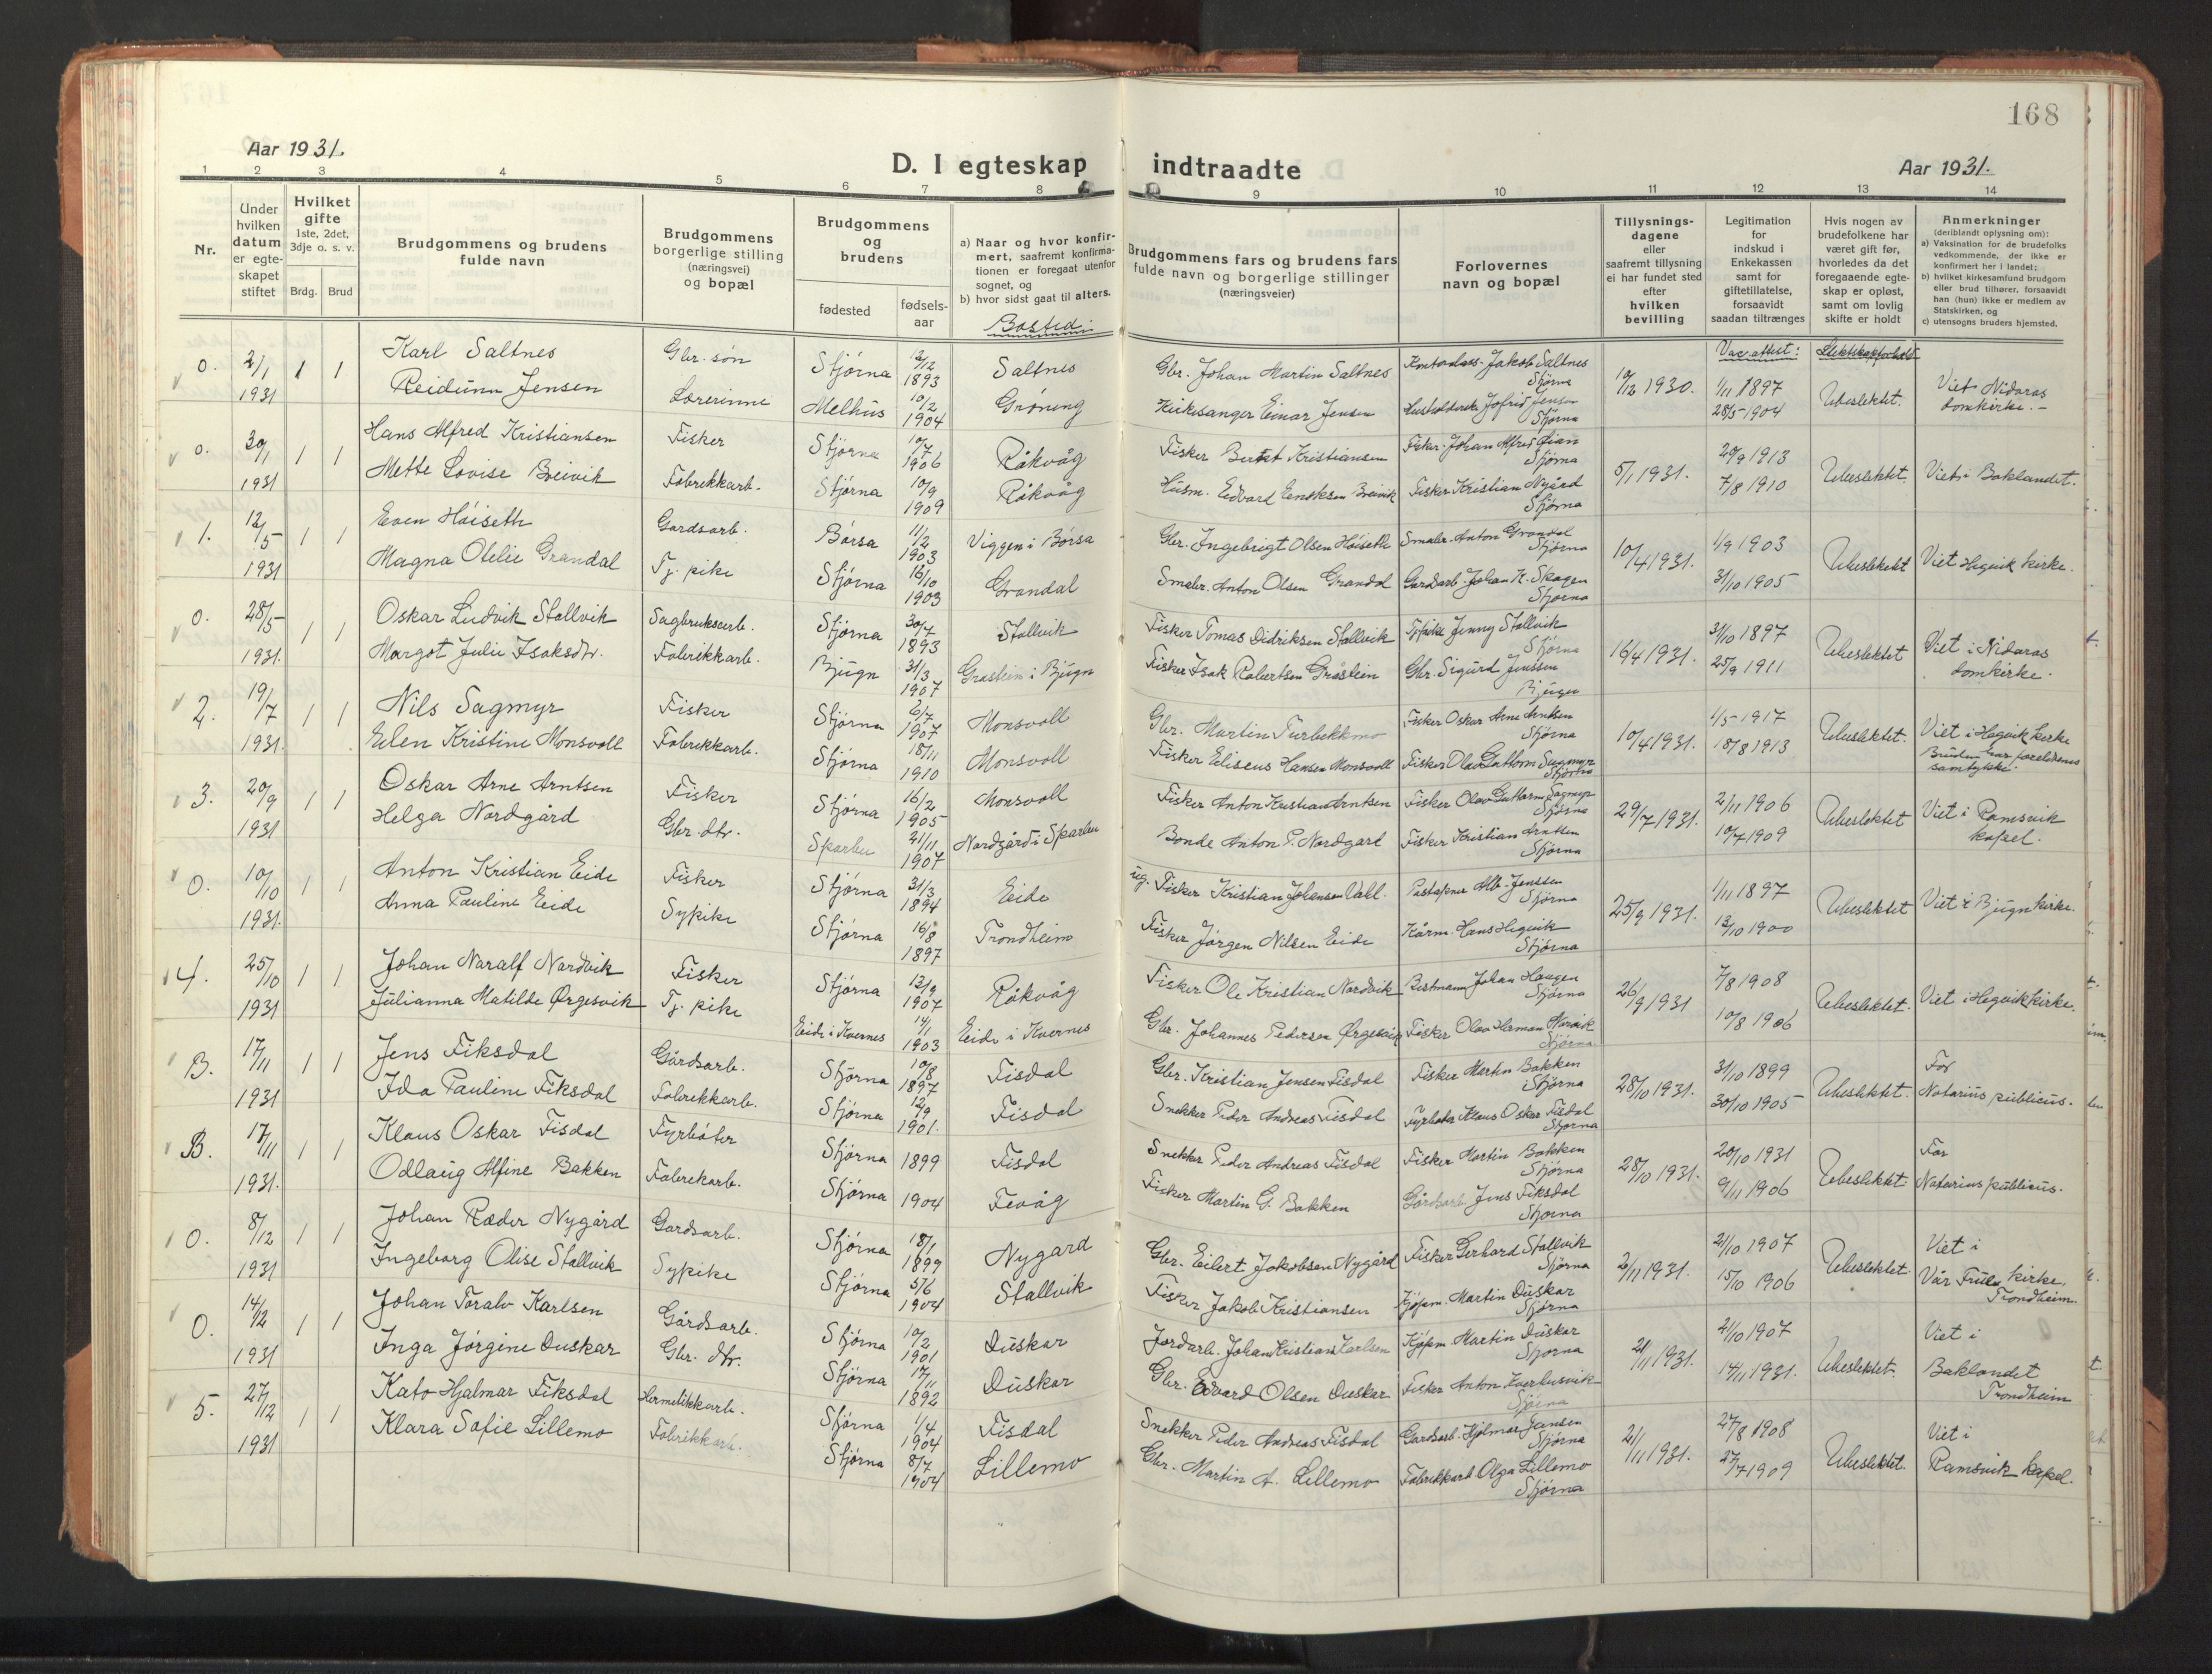 168
Aar 1931.
D. I egteskap indtraadte
Aar 1931.
1 2 3 4 5 6 7 8 9 10 11 12 13 14
Nr.
Under hvilken datum er egteskapet stiftet
Hvilket gifte 1ste, 2det, 3dje o. s. v.
Brdg. Brud
Brudgommens og brudens fulde navn
Brudgommens borgerlige stilling (næringsvei) og bopæl
Brudgommens og brudens
fødested
fødselsaar
a) Naar og hvor konfirmert, saafremt konfirmationen er foregaat utenfor sognet, og
b) hvor sidst gaat til alters.
Bosted:
Brudgommens fars og brudens fars fulde navn og borgerlige stillinger (næringsveier)
Forlovernes navn og bopæl
Tillysningsdagene eller saafremt tillysning ei har fundet sted efter hvilken bevilling
Legitimation for indskud i Enkekassen samt for giftetillatelse, forsaavidt saadan tiltrænges
Hvis nogen av brudefolkene har været gift før, hvorledes da det foregaaende egteskap er opløst, samt om lovlig skifte er holdt
Anmerkninger (deriblandt oplysning om):
a) Vaksination for de brudefolks vedkommende, der ikke er konfirmert her i landet;
b) hvilket kirkesamfund brudgom eller brud tilhører, forsaavidt han (hun) ikke er medlem av Statskirken, og
c) utensogns bruders hjemsted.
Vac. attest: Slektskapsforhold
0. 2/1 1 1 Karl Saltnes Gbr. søn Stjørna 2/12 1893 Saltnes Gbr. Johan Martin Saltnes Jakob Saltnes Stjørna 10/12 1930. 1/11 1897 Ubeslektet. Viet Nidaros
1931 Reidunn Jensen Lærerinne Melhus 10/2 1904 Grøning Kirkesanger Einar Jensen Jofrid Jensen Stjørna 28/5 1904 domkirke.-
0. 30/1 1 1 Hans Alfred Kristiansen Fisker Stjørna 10/7 1906 Råkvåg Fisker Kristiansen Fisker Johan Alfred Øian Stjørna 5/1 1931. 20/9 1913 Ubeslektet. Viet i Baklandet.
1931 Mette Lovise Breivik Fabrikkarb. Stjørna 10/9 1909 Råkvåg Husm. Edvard Breivik Fisker Kristian Nygård Stjørna 7/8 1910
1. 12/5 1 1 Even Høiseth Gardsarb. Børsa 11/2 1903 Viggen i Børsa Gbr. Ingebrigt Olsen Høiseth Småbr. Anton Grandal Stjørna 10/4 1931. 1/9 1903 Ubeslektet Viet Hegvik kirke.
1931 Magna Otelie Grandal Tj. pike Stjørna 16/10 1903 Grandal Småbr. Anton Olsen Grandal Gardarb. Johan K. Skagen Stjørna 31/10 1905
0. 28/5 1 1 Oskar Ludvik Stallvik Sagbruksarb. Stjørna 30/7 1893 Stallvik Fisker Tomas Didriksen Stallvik Jenny Stallvik Stjørna 16/4 1931. 31/10 1897 Ubeslektet Viet i Nidaros
1931. Margot Julie Isaksdtr. Fabrikkarb. Bjugn 31/3 1907 Gråstein i Bjugn Fisker Isak Robertsen Gråstein Gbr. Sigurd Jenssen Bjugn 25/9 1911 domkirke.
2. 19/7 1 1 Nils Sagmyr Fisker Stjørna 6/7 1907 Monsvoll Gbr. Martin Turbekkmo Fisker Oskar Arne Arntsen Stjørna 10/4 1931. 1/5 1917 Ubeslektet. Viet i Hegvik kirke
1931. Elen Kristine Monsvoll Fabrikkarb. Stjørna 18/11 1910 Monsvoll Fisker Eliseus Hansen Monsvoll Fisker Olav Guttorm Sagmyr Stjørna 18/8 1913 Bruden har foreldrenes samtykke.
3. 20/9 1 1 Oskar Arne Arntsen Fisker Stjørna 16/2 1905 Monsvoll Fisker Anton Kristian Arntsen Fisker Olav Guttorm Sagmyr Stjørna 29/7 1931. 2/11 1906 Ubeslektet Viet i Ramsvik
1931 Helga Nordgård Gbr. dtr. Sparbu 21/11 1907 Nordgård i Sparbu Bonde Anton P. Nordgard Fisker Kristian Arntsen Stjørna 10/7 1909 kapel.
0. 10/10 1 1 Anton Kristian Eide Fisker Stjørna 31/3 1894 Eide ug. Fisker Kristian Johansen Vall. Alb. Jenssen Stjørna 25/9 1931. 1/11 1897 Ubeslektet Viet i Bjugn kirke.
1931. Anna Pauline Eide Sypike Stjørna 16/8 1897 Trondheim Fisker Jørgen Nilsen Eide Hans Hegvik Stjørna 13/10 1900
4. 25/10 1 1 Johan Naralf Nardvik Fisker Stjørna 13/9 1907 Råkvåg Fisker Ole Kristian Nordvik Johan Haugen Stjørna 26/9 1931 7/8 1908 Ubeslektet. Viet i Hegvik kirke.
1931 Julianna Matilde Ørgesvik Tj. pike Eide i Kvernes 14/1 1903 Eide i Kvernes Gbr. Johannes Pedersen Ørgesvik Fisker Olav Herman Norvik Stjørna 10/8 1906
B. 17/11 1 1 Jens Fiksdal Gårdsarb. Stjørna 10/8 1897 Fisdal Gbr. Kristian Jensen Fisdal Fisker Martin Bakken Stjørna 28/10 1931. 31/10 1899 Ubeslektet. For
1931 Ida Pauline Fiksdal Fabrikkarb. Stjørna 12/9 1901. Fisdal Snekker Peder Andreas Fisdal Fyrbøter Klaus Oskar Fisdal Stjørna 30/10 1905 Notarius publicus.
B. 17/11 1 1 Klaus Oskar Fisdal Fyrbøter Stjørna 1899 Fisdal Snekker Peder Andreas Fisdal Fisker Martin Bakken Stjørna 28/10 1931. 20/10 1931 Ubeslektet. For
1931. Odlaug Alfine Bakken Fabrikarb. Stjørna 1904 Fevåg Fisker Martin G. Bakken Gårdsarb. Jens Fiksdal Stjørna 9/11 1906 Notarius publicus.
0. 8/12 1 1 Johan Ræder Nygård Gardsarb. Stjørna 18/1 1899 Nygard Gbr. Eilert Jakobsen Nygård Fisker Gerhard Stallvik Stjørna 2/11 1931. 21/10 1907 Ubeslektet. Viet i
1931 Ingeborg Olise Stallvik Sypike Stjørna 5/6 1904 Stallvik Fisker Jakob Kristiansen Kjøpm. Martin Duskar Stjørna 15/10 1906 Vår Frue kirke, Trondheim.
0. 14/12 1 1 Johan Toralv Karlsen Gårdsarb. Stjørna 10/2 1901 Duskar Jordarb. Johan Kristian Karlsen Kjøpm. Martin Duskar Stjørna 21/11 1931. 21/10 1907 Ubeslektet. Viet i
1931 Inga Jørgine Duskar Gbr. dtr. Stjørna 17/11 1892 Duskar Gbr. Edvard Olsen Duskar Fisker Anton Stjørna 14/11 1931. Baklandet Trondheim
5. 27/12 1 1 Kato Hjalmar Fiksdal Hermetikkarb. Stjørna 1/4 1904 Fisdal Snekker Peder Andreas Fisdal Gardsarb. Hjalmar Jensen Stjørna 21/11 1931. 27/8 1908 Ubeslektet. Viet i
1931 Klara Sofie Lillemo Fabrikkarb. Stjørna 8/7 1904 Lillemo Gbr. Martin A. Lillemo Fabrikkarb Olga Lillemo Stjørna 27/7 1909 Ramsvik kapel.